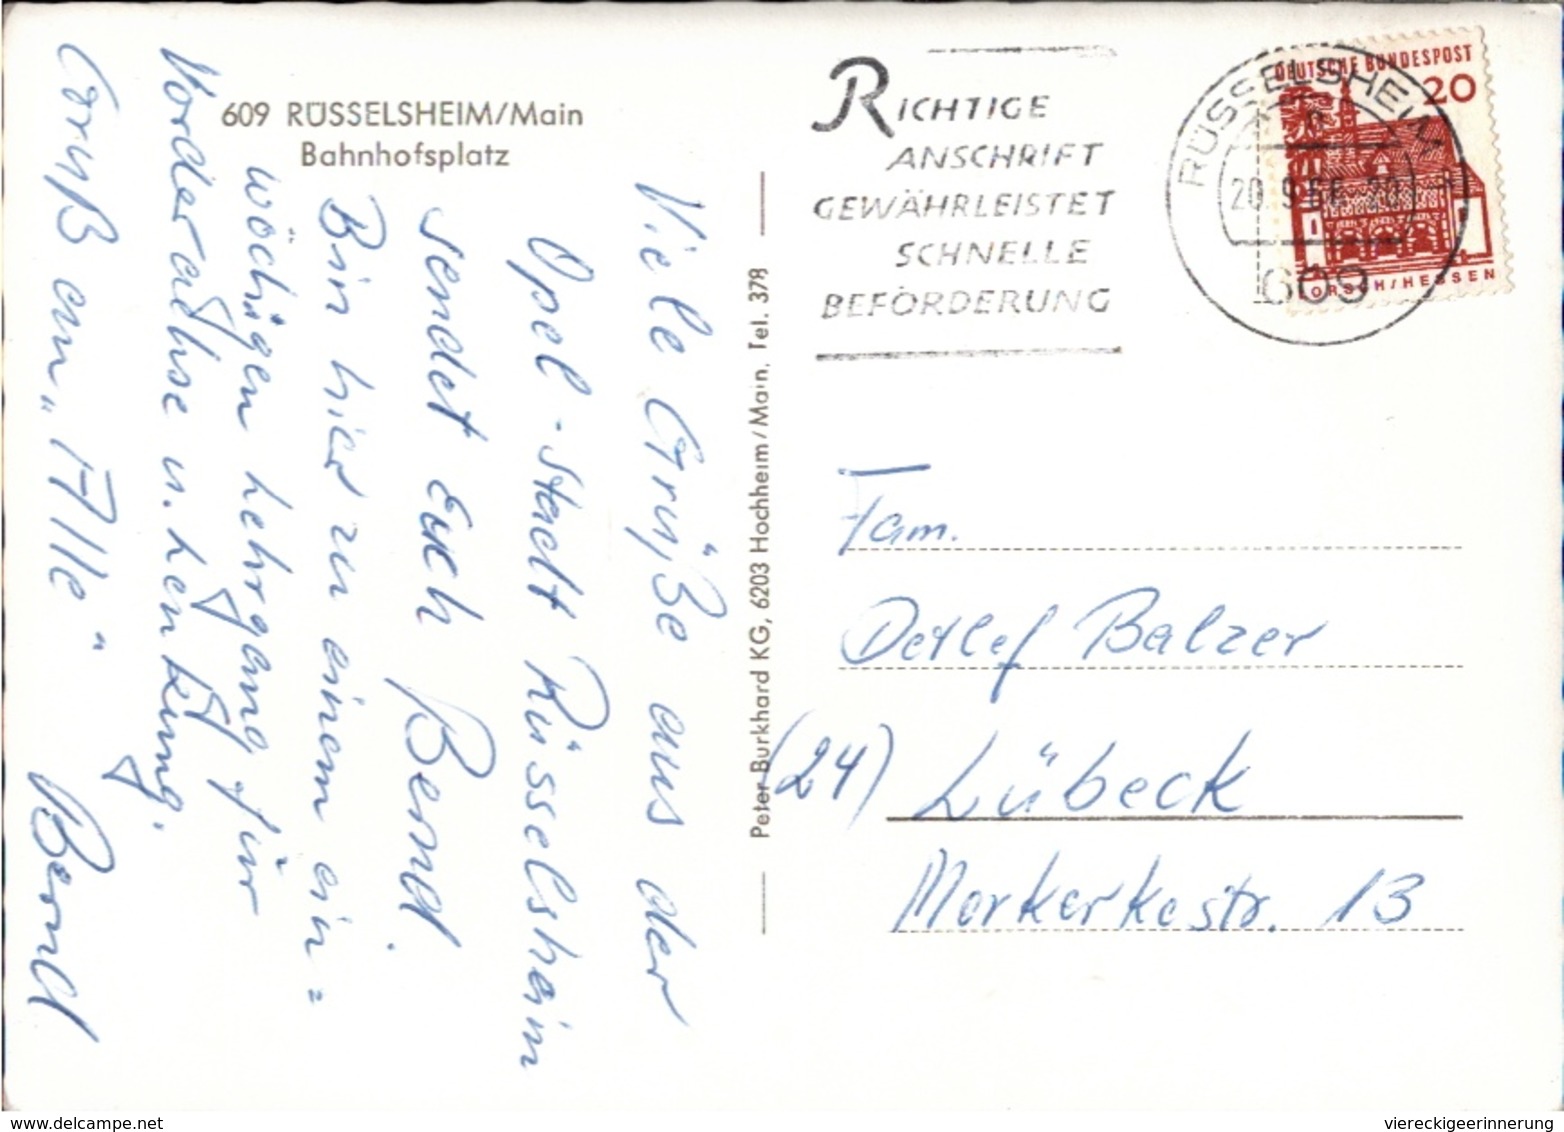 609 RÜSSELSHEIM/Main
Bahnhofsplatz
Viele Grüße aus der
Opel-Stadt Rüsselsheim
sendet Euch Bernd.
Bin hier zu einem ein=
wöchigen Lehrgang für
Vorderachse u. Lenkung.
Gruß an "Alle"
Bernd
Peter Burkhard KG, 6203 Hochheim/Main, Tel. 378
RICHTIGE
ANSCHRIFT
GEWÄHRLEISTET
SCHNELLE
BEFÖRDERUNG
DEUTSCHE BUNDESPOST
20
LORSCH/HESSEN
RÜSSELSHEIM
20.9.66-20
609
Fam.
Detlef Balzer
(24) Lübeck
Merkerkestr. 13
www.delcampe.net
viereckigeerinnerung